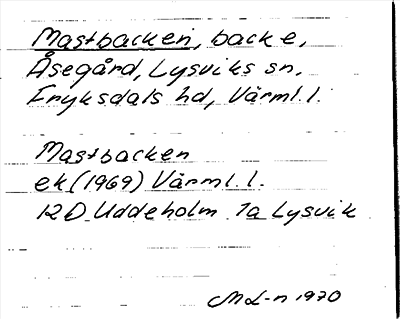 Mastbacken, backe,
Åsegård, Lysviks sn,
Fryksdals hd, Värml. l.
Mastbacken
ek (1969) Värml. l.
12 D Uddeholm 1a Lysvik
ML-n 1970